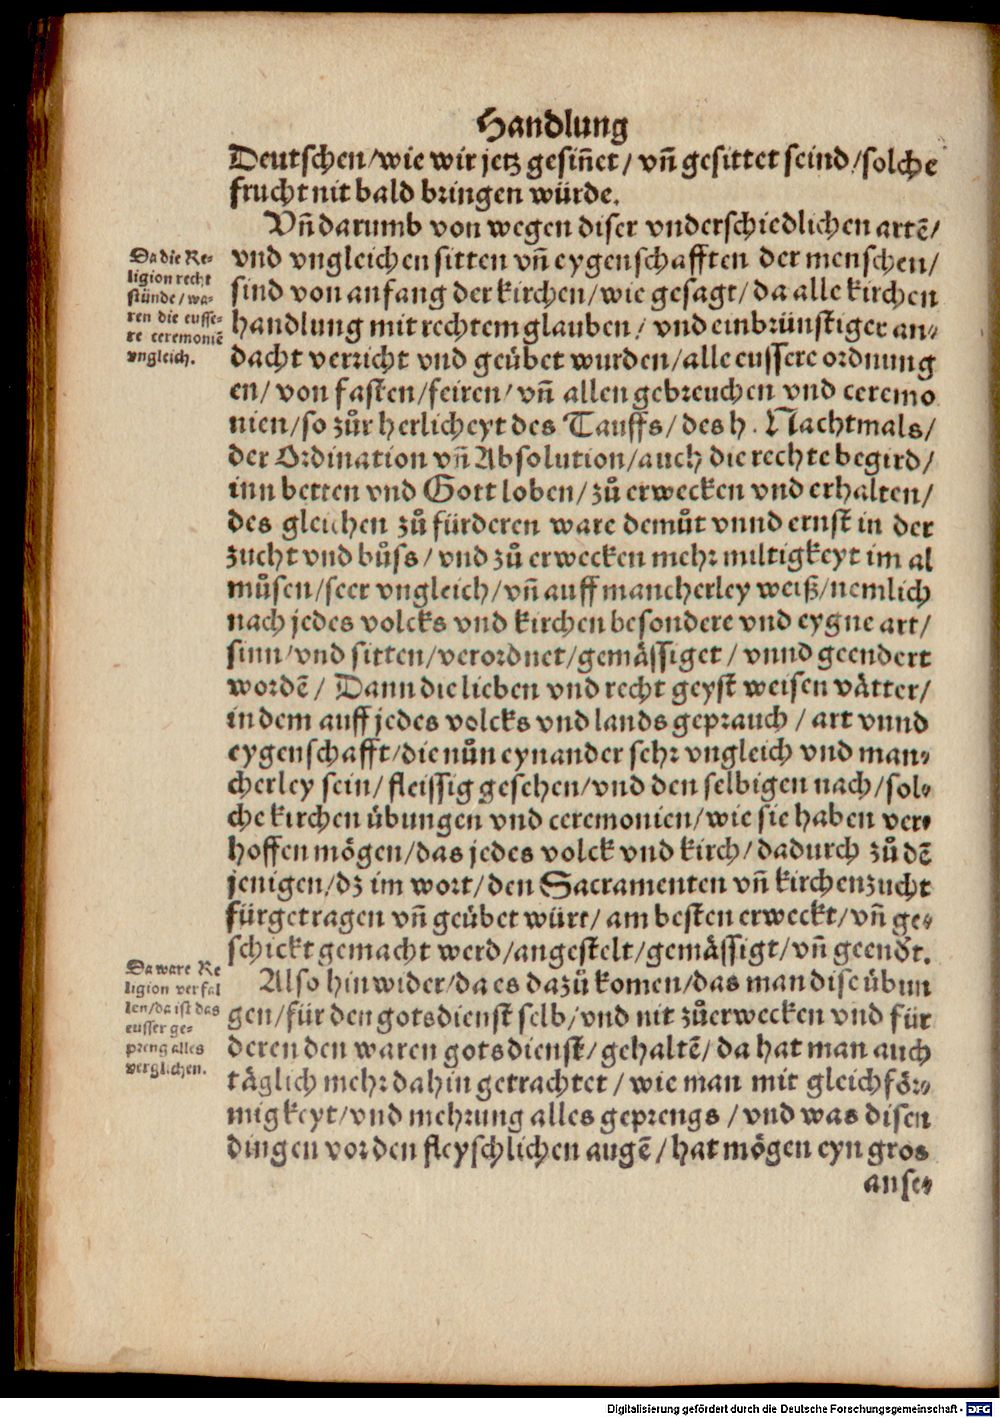 Handlung
Deutschen/wie wir jetz gesiñet/ vñ gesittet seind/solche
frucht nit bald bringen würde.
Vñ darumb von wegen diser vnderschiedlichen artẽ/
vnd vngleichen sitten vñ eygenschafften der menschen/
sind von anfang der kirchen/wie gesagt/da alle kirchen
handlung mit rechtem glauben/ vnd einbrünstiger an-
dacht verricht vnd geübet wurden/alle eussere ordnung
en/ von fasten/feiren/ vñ allen gebreuchen vnd ceremo
nien/so zůr herlicheyt des Tauffs/ des h. Nachtmals/
der Ordination vñ Absolution/auch die rechte begird/
inn betten vnd Gott loben/ zů erwecken vnd erhalten/
des gleichen zů fürderen ware demůt vnnd ernst in der
zucht vnd bůss/ vnd zů erwecken mehr miltigkeyt im al
můsen/seer vngleich/vñ auff mancherley weiß/nemlich
nach jedes volcks vnd kirchen besondere vnd eygne art/
sinn/vnd sitten/verordnet/gemässiget/ vnnd geendert
wordẽ/ Dann die lieben vnd recht geyst weisen vätter/
in dem auff jedes volcks vnd lands geprauch/ art vnnd
eygenschafft/die nůn eynander sehr vngleich vnd man-
cherley sein/ fleissig gesehen/vnd den selbigen nach/sol-
che kirchen übungen vnd ceremonien/wie sie haben ver-
hoffen mögen/das jedes volck vnd kirch/dadurch zů dẽ
jenigen/dz im wort/den Sacramenten vñ kirchenzucht
fürgetragen vñ geübet würt/ am besten erweckt/vñ ge-
schickt gemacht werd/angestelt/gemässigt/vñ geendt.
Also hinwider/da es dazů komen/das man dise übun
gen/für den gotsdienst selb/vnd nit zůerwecken vnd für
deren den waren gotsdienst/ gehaltẽ/ da hat man auch
täglich mehr dahin getrachtet/ wie man mit gleichför-
migkeyt/vnd mehrung alles geprengs/vnd was disen
dingen vor den fleyschlichen augẽ/ hat mögen eyn gros
anse-
Da die Re-
ligion recht
stünde/wa-
ren die eusse-
re ceremoniẽ
vngleich.
Da ware Re
ligion verfal
len/da ist das
eusser ge-
preng alles
verglichen.
Digitalisierung gefördert durch die Deutsche Forschungsgemeinschaft - DFG